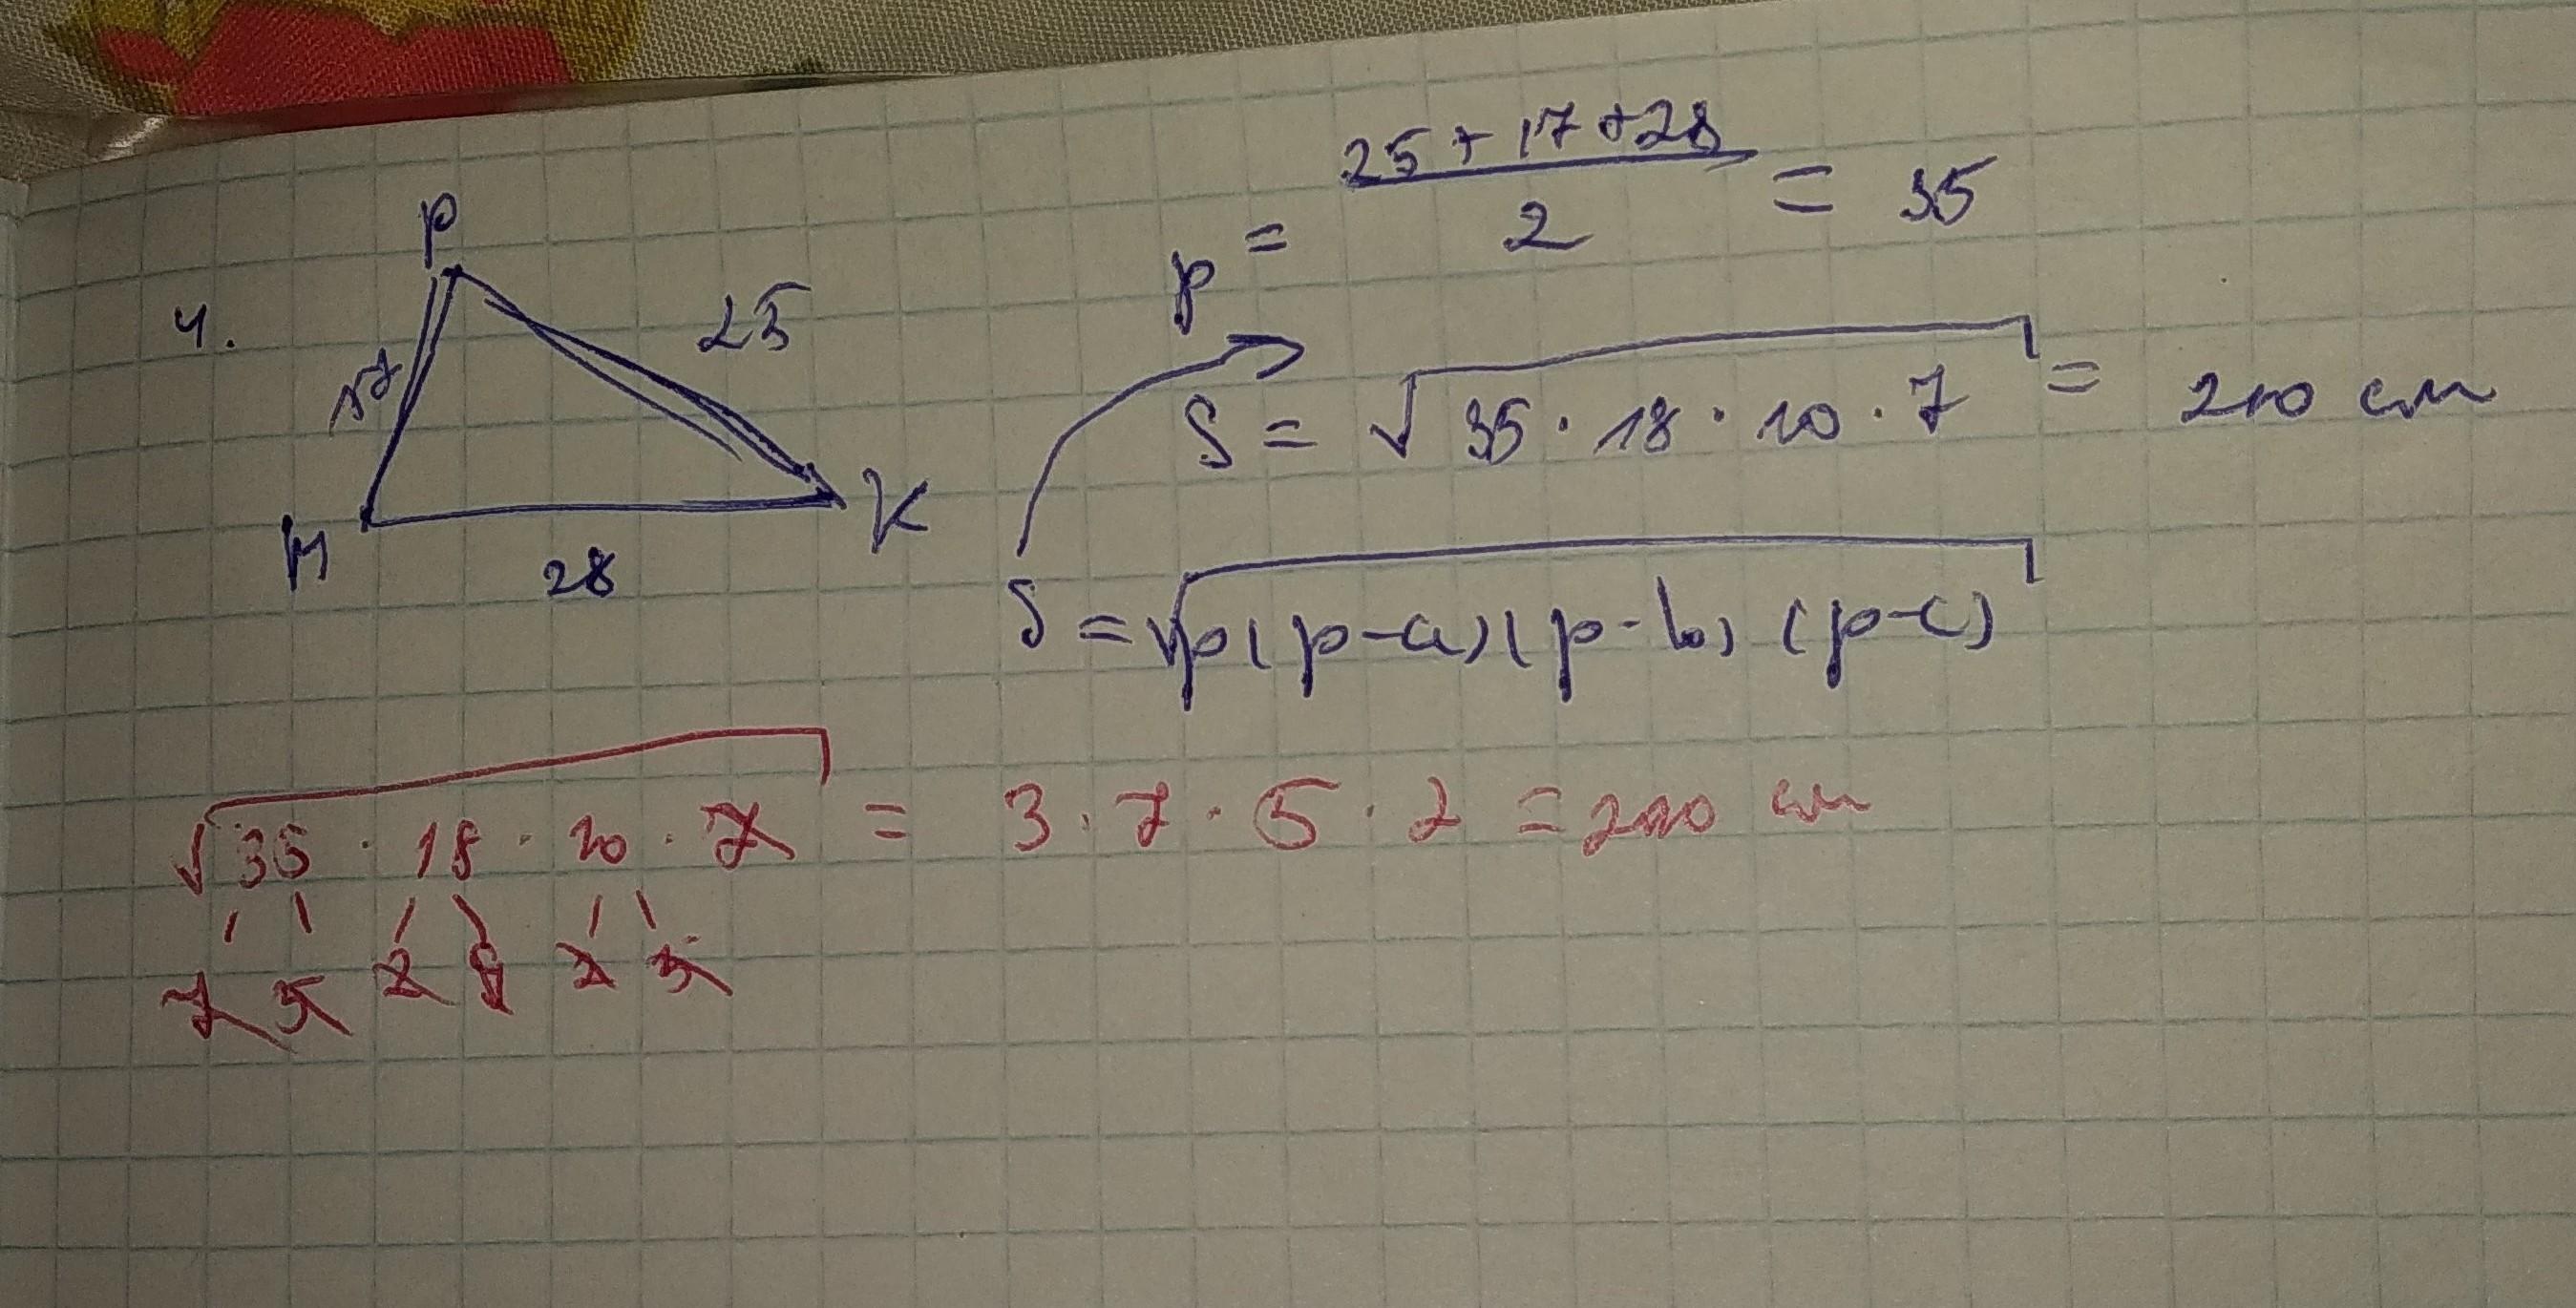 4.
P
17
25
М
28
K
p = (25 + 17 + 28)/2 = 35
S = √(35 · 18 · 10 · 7) = 210 cm
S = √(p(p-a)(p-b)(p-c))
√(35 · 18 · 10 · 7) = 3 · 7 · 5 · 2 = 210 cm
7 5 2 9 2 5